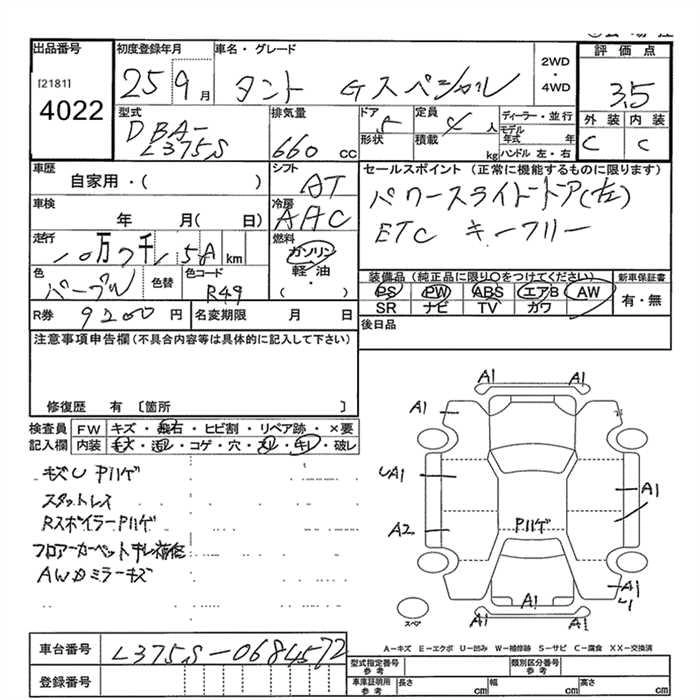 出品番号
[2181]
4022
初度登録年月
25 9月
車名・グレード
タント Gスペシャル
2WD・4WD
評価点
3.5
外装 内装
C C
型式
DBA-L375S
排気量
660 CC
ドア
5
形状
定員
4人
積載 kg
ディーラー・並行
モデル年式 年
ハンドル 左・右
車歴
自家用・( )
シフト
AT
車検
年 月( 日)
冷房
AAC
走行
km
燃料
ガソリン・軽・油・( )
色
パープル
色替
色コード
R49
R券 9200円
名変期限 月 日
セールスポイント (正常に機能するものに限ります)
パワースライドドア(左)
ETC キーフリー
装備品 (純正品に限り○をつけてください)
PS PW ABS エアB AW
SR ナビ TV カワ
新車保証書
有・無
後日品
注意事項申告欄 (不具合内容等は具体的に記入して下さい)
修復歴 有 [箇所 ]
検査員記入欄
FW キズ・飛石・ヒビ割・リペア跡・×要
内装 キズ・汚レ・コゲ・穴・スレ・キレ・破レ
キズU Pハゲ
スタットレス
RスポイラーPハゲ
フロアーカーペット
AWカミラーキズ
A1 A1
A1
UA1
A1
A2
Pハゲ
A1
A1
A1 A1
スペア
A-キズ E-エクボ U-凹み W-補修跡 S-サビ C-腐食 XX-交換済
車台番号
L375S-0684572
登録番号
型式指定番号 参考
類別区分番号 参考
車庫証明用 参考
長さ cm 幅 cm 高さ cm